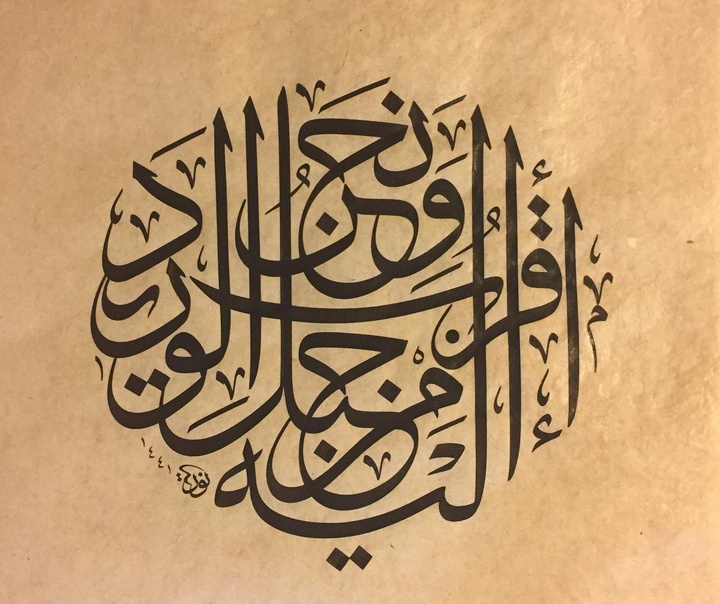 ونحن أقرب إليه من حبل الوريد
١٤٤١